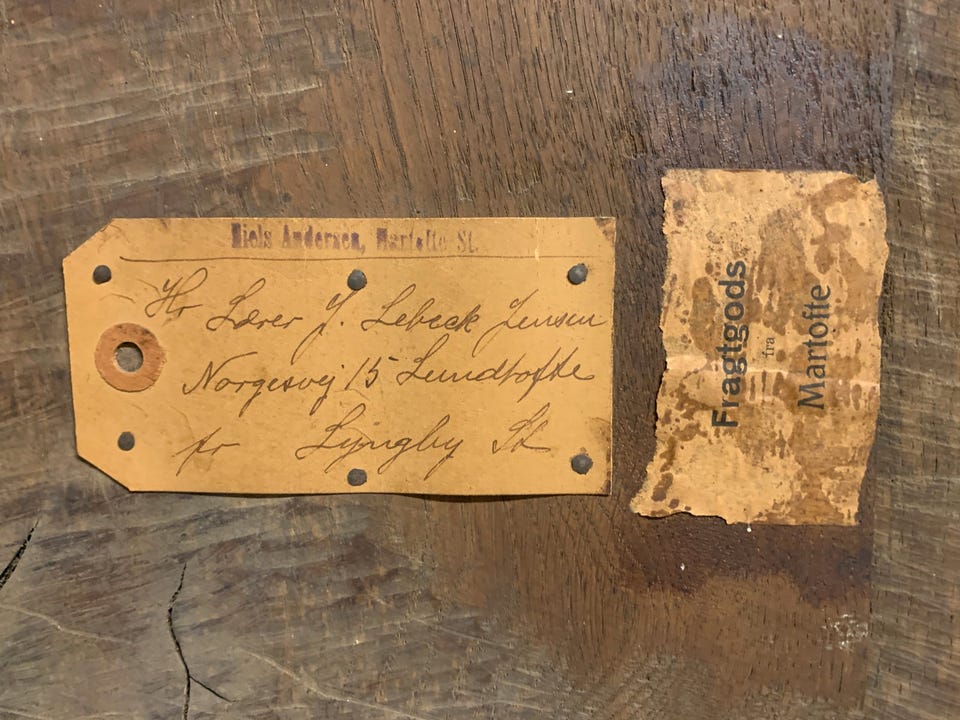 Niels Andersen, Martofte St.
Hr Lærer J. Lebeck Jensen
Norgesvej 15 Lundtofte
pr Lyngby St
Fragtgods
fra
Martofte